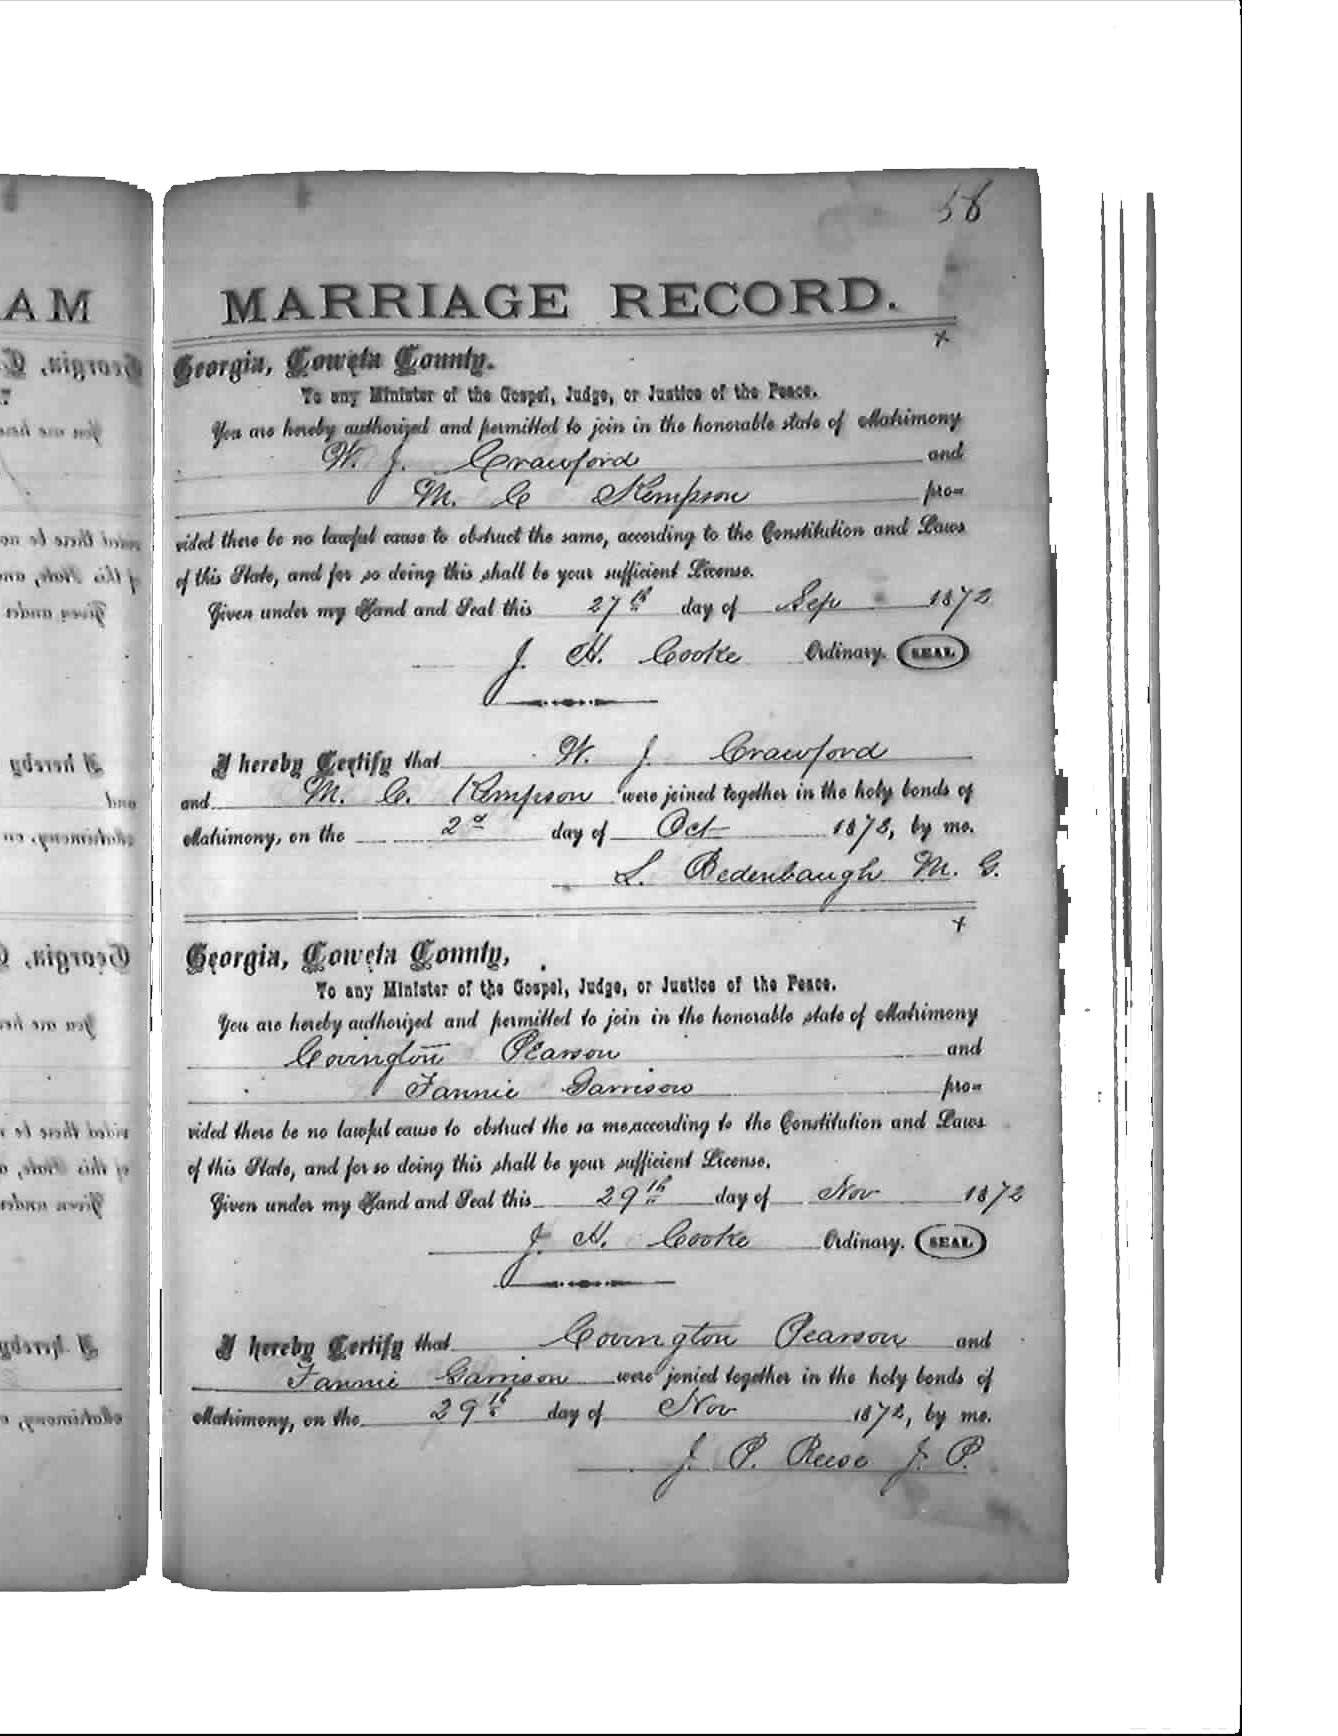 58
MARRIAGE RECORD.
Georgia, Coweta County.
To any Minister of the Gospel, Judge, or Justice of the Peace.
You are hereby authorized and permitted to join in the honorable state of Matrimony
W. J. Crawford and
M. C Kempson pro=
vided there be no lawful cause to obstruct the same, according to the Constitution and Laws
of this State, and for so doing this shall be your sufficient License.
Given under my Hand and Seal this 27th day of Sep 1872
J. H. Cooke Ordinary. SEAL
I hereby Certify that W. J. Crawford
and M. C. Kempson were joined together in the holy bonds of
Matrimony, on the 2d day of Oct 1872, by me.
L. Bedenbaugh M. G.
Georgia, Coweta County,
To any Minister of the Gospel, Judge, or Justice of the Peace.
You are hereby authorized and permitted to join in the honorable state of Matrimony
Covington Pearson and
Fannie Garrison pro=
vided there be no lawful cause to obstruct the sa me,according to the Constitution and Laws
of this State, and for so doing this shall be your sufficient License.
Given under my Hand and Seal this 29th day of Nov 1872
J. H. Cooke Ordinary. SEAL
I hereby Certify that Covington Pearson and
Fannie Garrison were jonied together in the holy bonds of
Matrimony, on the 29th day of Nov 1872, by me.
J. P. Reese J. P.